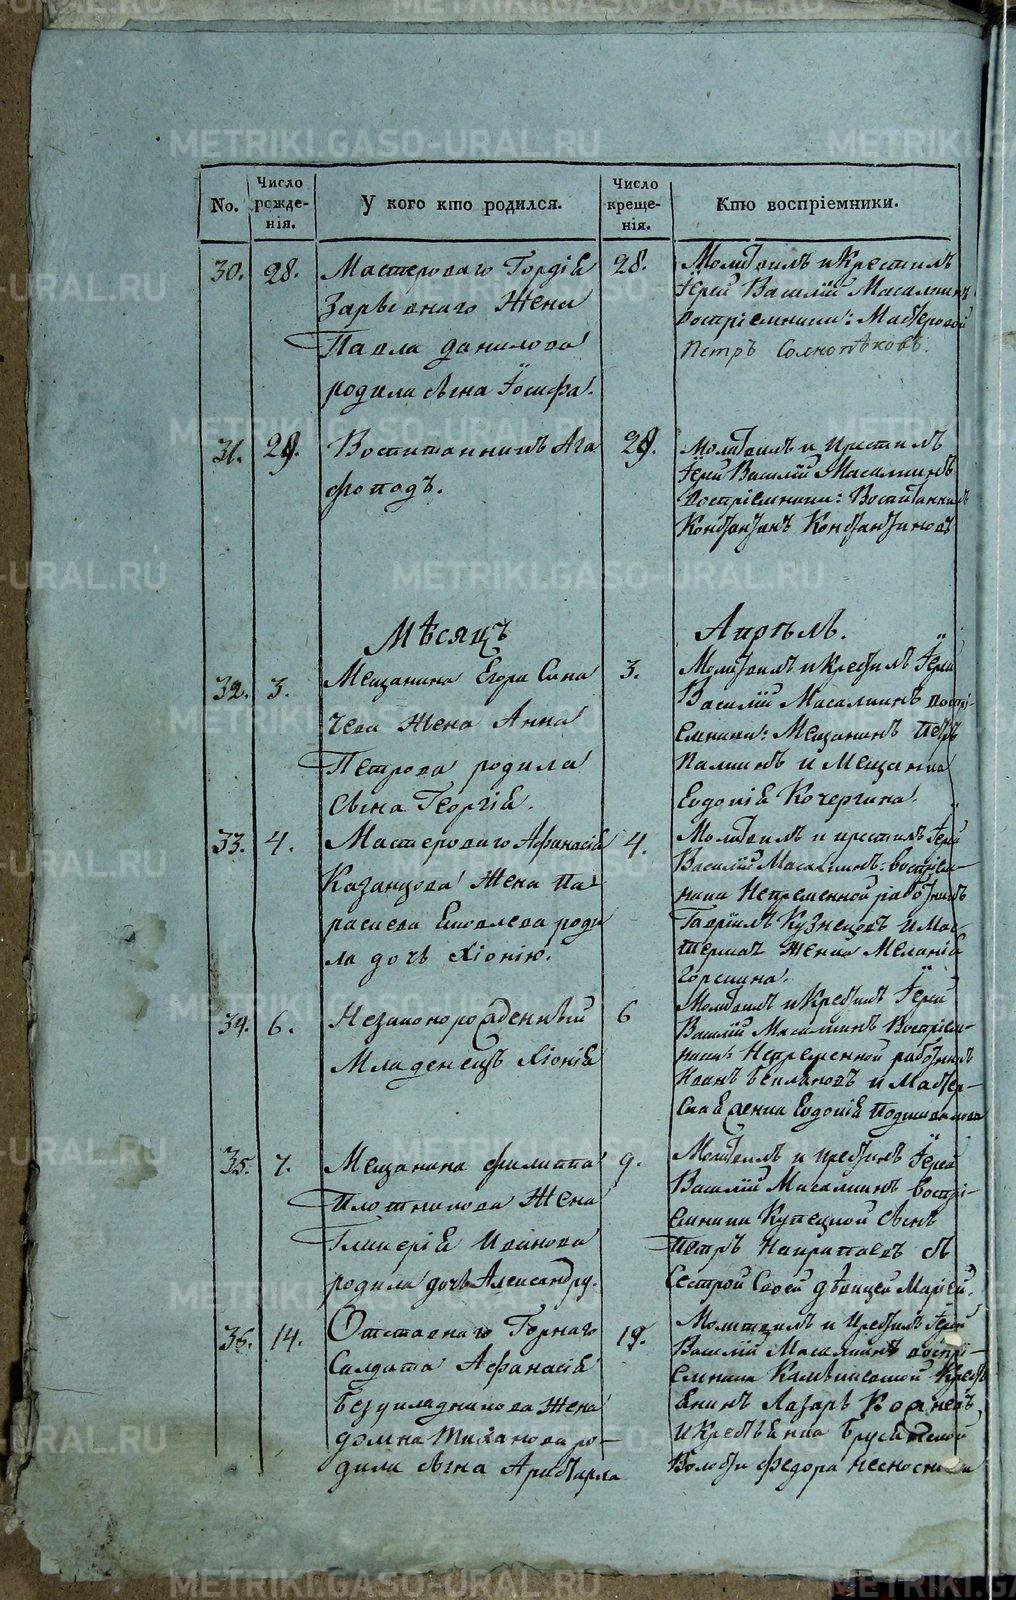 METRIKI.GASO-URAL.RU
No.
Число рожде-нія.
У кого кто родился.
Число креще-нія.
Кто воспріемники.
30.
28.
Мастероваго Гордія
Жена
Павла Данилова
родила сына Іосифа.
28.
Молитвилъ и Крестилъ
Іерей Василій Масалкинъ
Воспріемники: Мастеровой
Петръ
31.
29.
Воспитанникъ Ага
фоподъ.
29.
Молитвилъ и крестилъ
Іерей Василій Масалкинъ
Воспріемники: Воспитанникъ
Констянтинъ Констянтиновъ
Мѣсяцъ
Апрѣль.
32.
3.
Мещанина Егора Сина
чева жена Анна
Петрова родила
сына Георгія.
3.
Молитвилъ и Крестилъ Іерей
Василій Масалкинъ Воспрі-
емники: Мещанинъ Петръ
и Мещанка
Евдокія Кочергина.
33.
4.
Мастероваго Афанасія
Казанцова Жена Па
раскева Яковлева роди
ла дочь Хіонію.
4.
Молитвилъ и крестилъ Іерей
Василій Масалкинъ: воспріем-
ники Непременной работникъ
Гавріилъ Кузнецовъ и Мас-
терская Женка Меланія
Горскина.
34.
6.
Незаконорожденный
Младенецъ Хіонія
6
Молитвилъ и Крестилъ Іерей
Василій Масалкинъ Воспріем-
ники: Непременной работникъ
Иванъ и Мастер-
ская женка Евдокія
35.
7.
Мещанина Филиппа
Плотникова Жена
Гликерія Иванова
родила дочь Александру.
9.
Молитвилъ и крестилъ Іерей
Василій Масалкинъ Воспрі-
емники Купецкой сынъ
Петръ съ
Сестрой Своей дѣвицей Маріей.
36.
14.
Отставнаго Горнаго
Салдата Афанасія
Безукладникова Жена
Домна Тиханова ро-
дила сына Аристарха
19.
Молитвилъ и Крестилъ Іерей
Василій Масалкинъ воспрі-
емники Камышевской Крест
янинъ Лазарь Корневъ
и Крестьянка Брусянской
Волости Федора